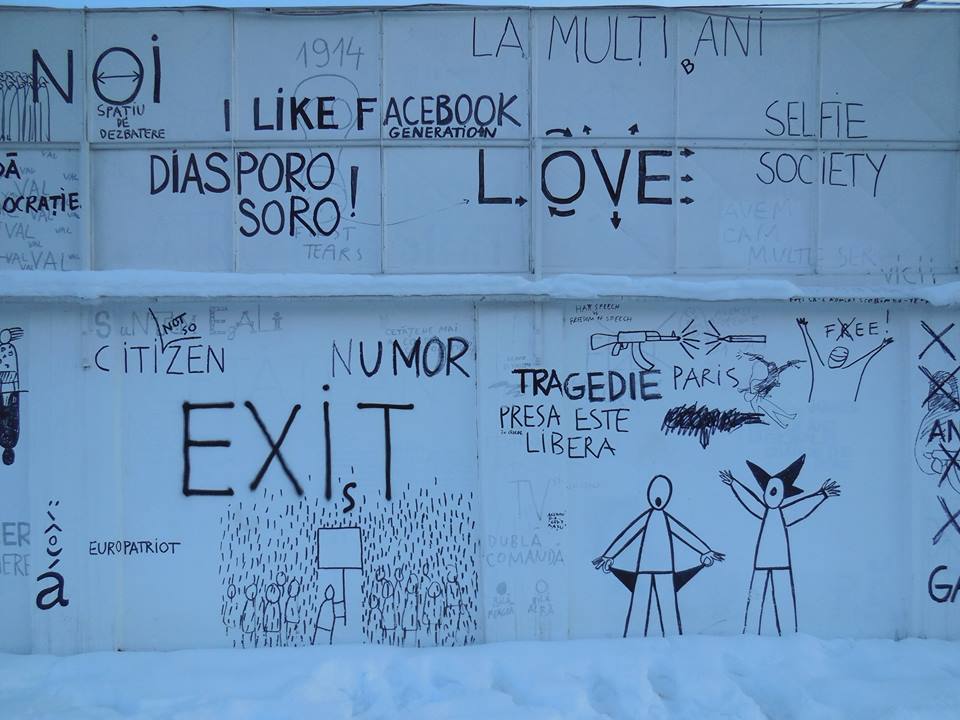 NOI
SPAȚIU
DE
DEZBATERE
1914
LA MULȚI ANI
B
I LIKE FACEBOOK
GENERATION
SELFIE
SOCIETY
DIASPORO
SORO!
TEARS
LOVE
AVEM
CAM
MULTE
VAL
VAL
VAL
OCRAȚIE
VAL
VAL
CITIZEN
NOT SO
CETĂȚENE MAI
NUMOR
EXIST
HATE SPEECH
VS
FREEDOM OF SPEECH
FREE!
TRAGEDIE PARIS
PRESA ESTE
LIBERA
TV
DUBLA
COMANDA
EUROPATRIOT
á
AN
GA